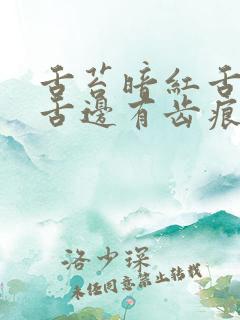 舌苔暗红舌
舌边有齿痕
洛少琛
未经同意禁止转载